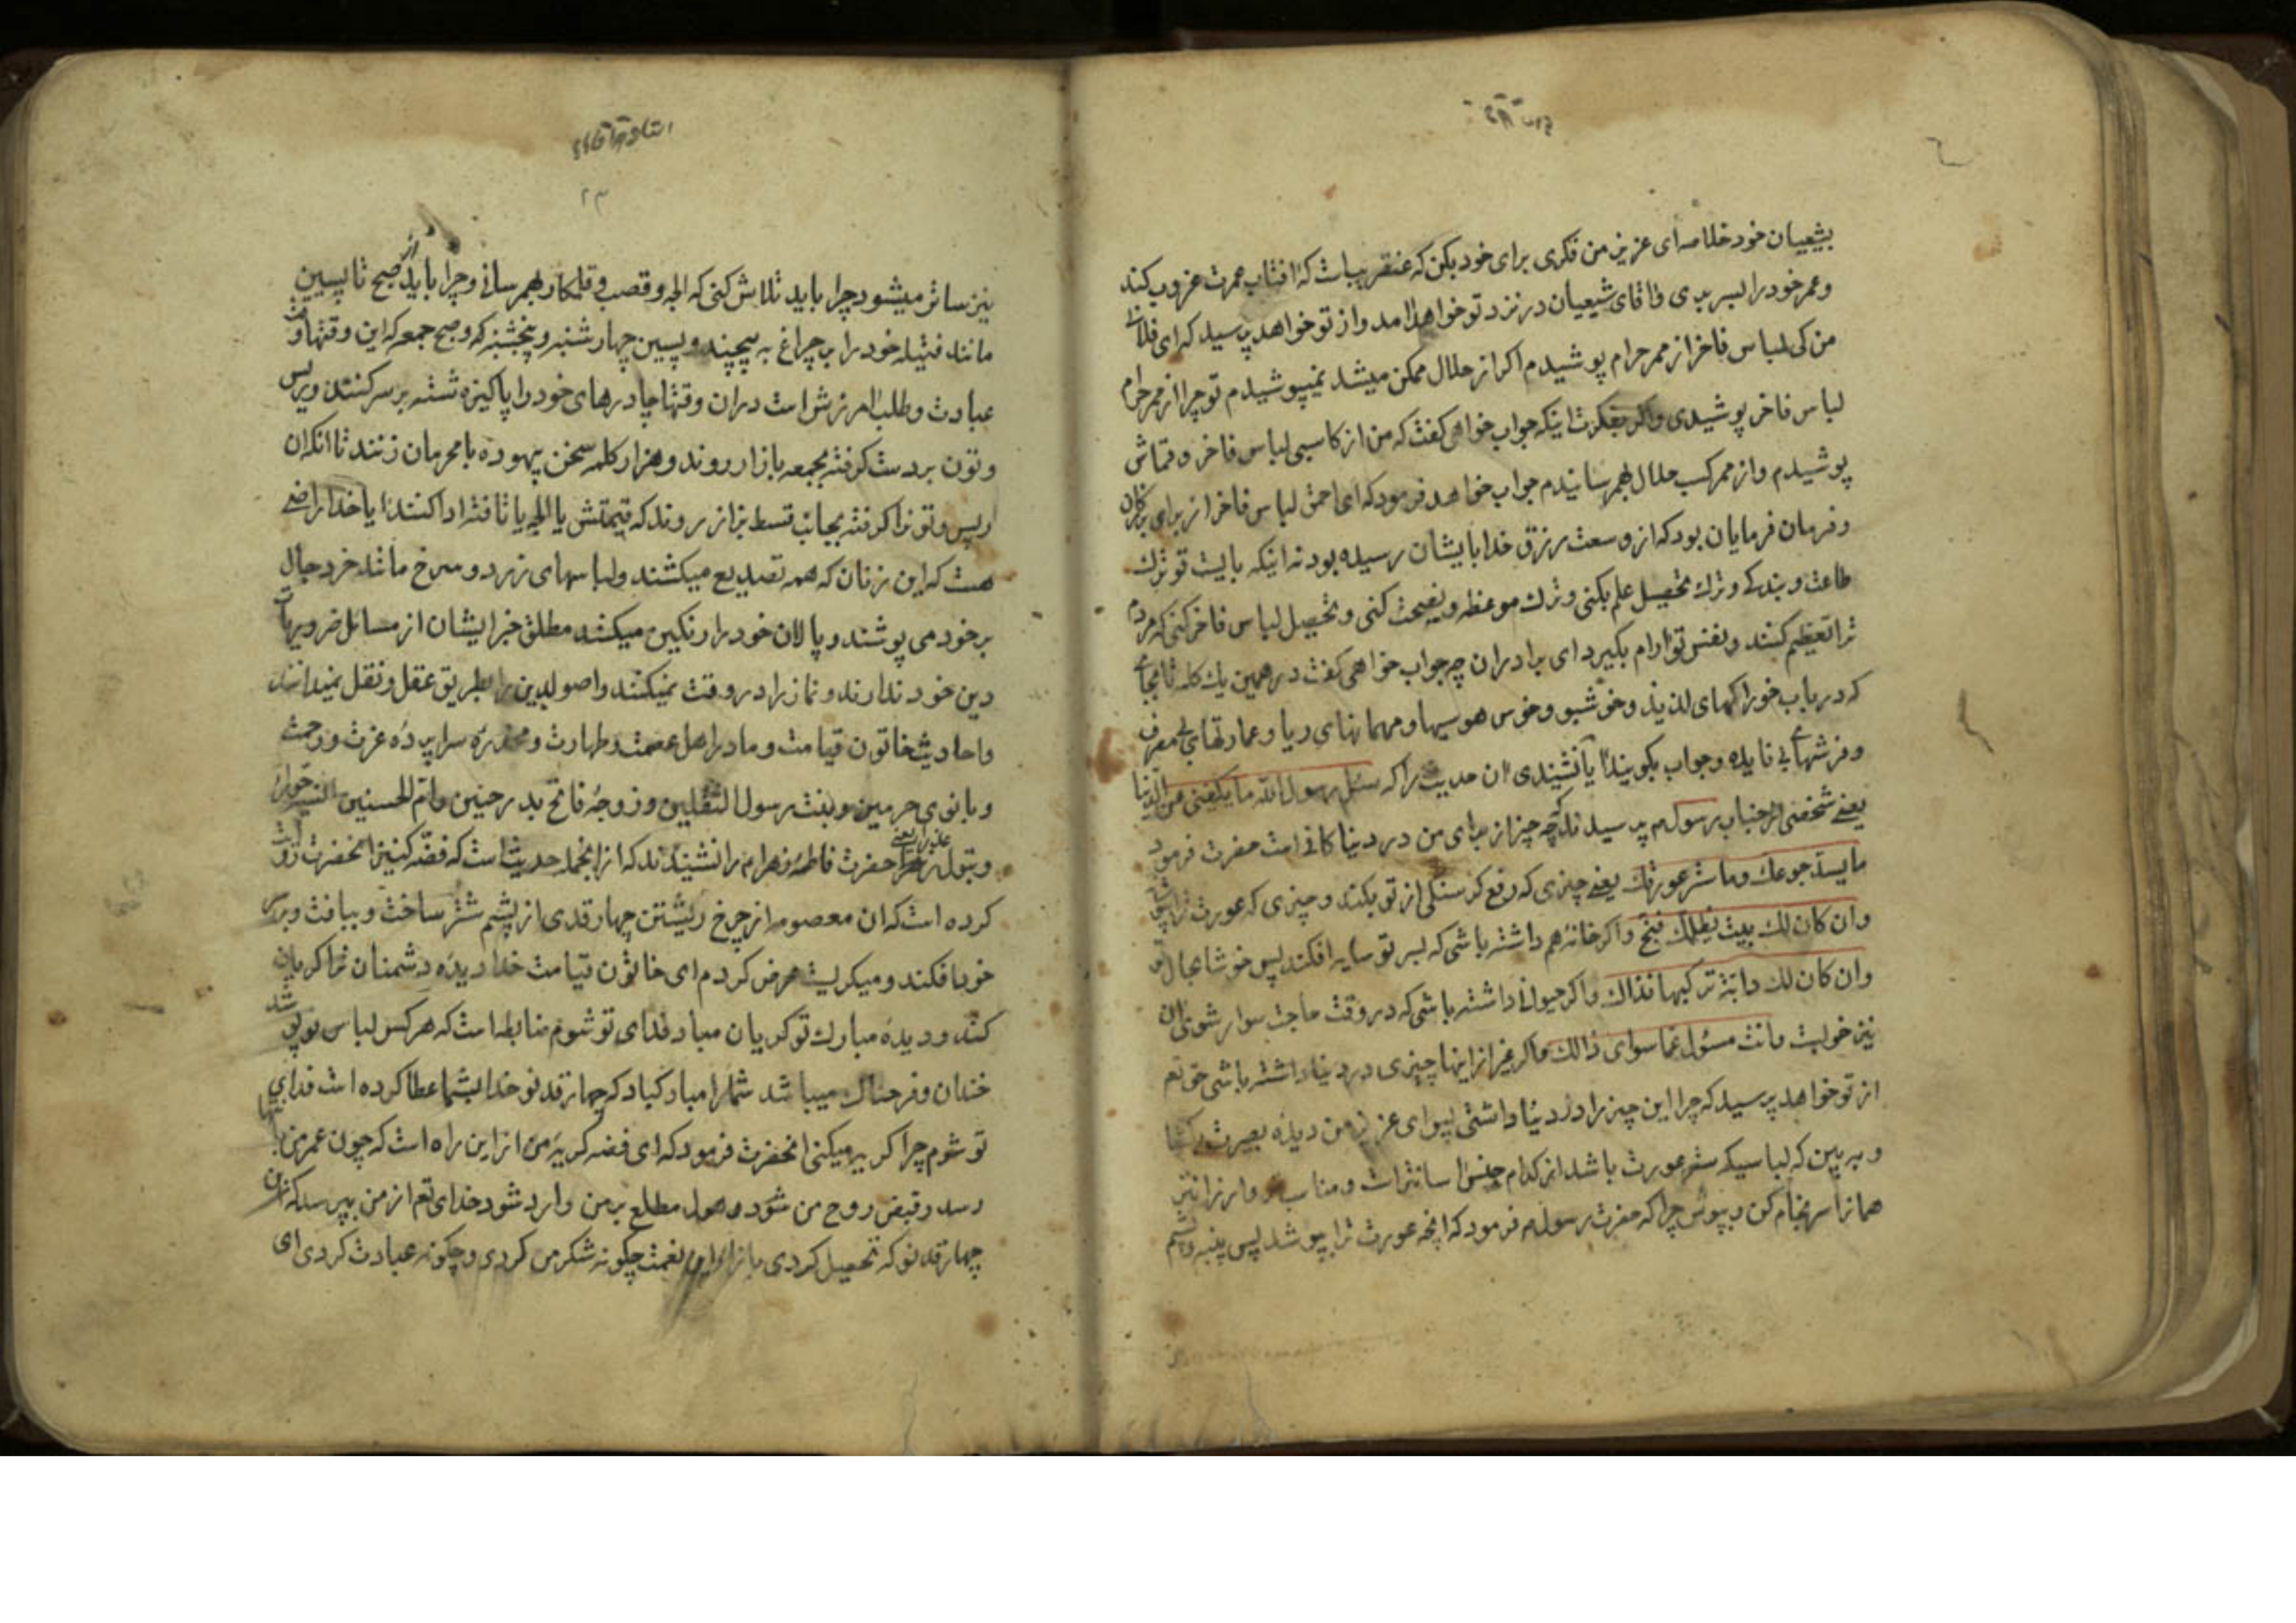 بشیعیان خود خلاصه ای عزیز من فکری برای خود بکن که عنقریبست که افتاب عمرت غروب کند
وعمر خود را بسر بری واقای شیعیان در نزد تو خواهد امد واز تو خواهد پرسید که ای فلانے
من کی لباس فاخر از ممر حرام پوشیدم اکر از حلال ممکن میشد نمیپوشیدم تو چرا از ممر حرام
لباس فاخر پوشیدی واکر بفکرت اینکه جواب خواهی کفت که من از کاسبی لباس فاخر وقماش
پوشیدم واز ممر کسب حلال بهمرسانیدم جواب خواهد فرمود که ای احمق لباس فاخر از برای بزرکان
وفرمان فرمایان بود که از وسعت رزق خدا بایشان رسیده بود نه اینکه بایست تو ترک
طاعت وبندکے وترک تحصیل علم بکنی وترک موعظه ونصیحت کنی وتحصیل لباس فاخر کنی که مردم
ترا تعظیم کنند ونفس تو ارام بکیرد ای برادران چه جواب خواهی کفت در همین یک کلمه تا بجائے
که در باب خوراکهای لذیذ وخوشبو وخوس هوسیها ومهمانهای ریا وعمارتهای بی مصرف
وفرشهای بے فایده وجواب بکویند ایا نشنیدی ان حدیث را که سئل رسول الله ما یکفینی من الدنیا
یعنے شخصی از جناب رسول م پرسید که چه چیز از برای من در دنیا کافے است حضرت فرمود
ما یسد جوعک وما ستر عورتک یعنے چیزی که رفع کرسنکی از تو بکند وچیزی که عورت ترا بپوشاند
وان کان لک بیت یظلک فبخ واکر خانه هم داشته باشی که بسر تو سایه افکند پس خوشا بحال تو
وان کان لک دابة ترکبها فذاک واکر حیوانے داشته باشی که در وقت حاجت سوار شوی ان
نیز خوبست وانت مسئول عما سوای ذالک واکر غیر از اینها چیزی در دنیا داشته باشی حق تع
از تو خواهد پرسید که چرا این چیز را در دنیا داشتی پس ای عزیز من دیده بصیرت بکشا
وبه بین که لباسیکه ستر عورت باشد از کدام جنس اسانتر است ومناسب وارزانتر
همانرا سرنجام کن وبپوش چرا که حضرت رسول م فرمود که انچه عورت ترا بپوشد پس پنبه وپشم
نیز ساتر میشود چرا باید تلاش کنی که الجه وقصب وقلمکار بهمرسانے وچرا باید از صبح تا پسین
مانند فتیله خود را بر چراغ به پیچند وپسین چهارشنبه وپنجشنبه که وصبح جمعه که این وقتها وقت
عبادت وطلب امرزش است دران وقتها چادرهای خود را پاکیزه شسته بر سر کنند وپس
وتون بر دست کرفته بجمعه بازار روند وهزار کلمه سخن بیهوده با محرمان زنند تا انکه ان
هست که این زنان که همه تصدیع میکشند ولباسهای زرد وسرخ مانند خر دجال
بر خود می پوشند وپالان خود را رنکین میکنند مطلق خبر ایشان از مسائل ضروریات
دین خود ندارند ونماز را در وقت نمیکنند واصول دین را بطریق عقل ونقل نمیدانند
واحادیث خاتون قیامت ومادر اهل عصمت وطهارت ومخدره سراپرده عزت ورحمت
وبانوی حرمین وبنت رسول الثقلین وزوجهٔ فاتح بدر حنین وام الحسنین انسیه حوراء
وبتول عذرا یعنے حضرت فاطمهٔ زهرا م را نشنیدند که از انجمله حدیث است که فضه کنیز انحضرت روایت
کرده است که ان معصومه از چرخ ریشتن چهار قدی از پشم شتر ساخت وببافت وبر سر
خود افکند ومیکریست عرض کردم ای خاتون قیامت خدا دیده دشمنان ترا کریان
کند ودیدهٔ مبارک تو کریان مباد فدای تو شوم ضابطه است که هر کس لباس نو پوشد
خندان وفرحناک میباشد شما را مبارکباد که چهار قد نو خدا بشما عطا کرده است فدای
تو شوم چرا کریه میکنی انحضرت فرمود که ای فضه کریه من از این راه است که چون عمر من بنتها
رسد وقبض روح من شود وهول مطلع بر من وارد شود خدای تع از من بپرسد که ان
چهار قد نو که تحصیل کردی بازاء این نعمت چکونه شکر من کردی وچکونه عبادت کردی ای